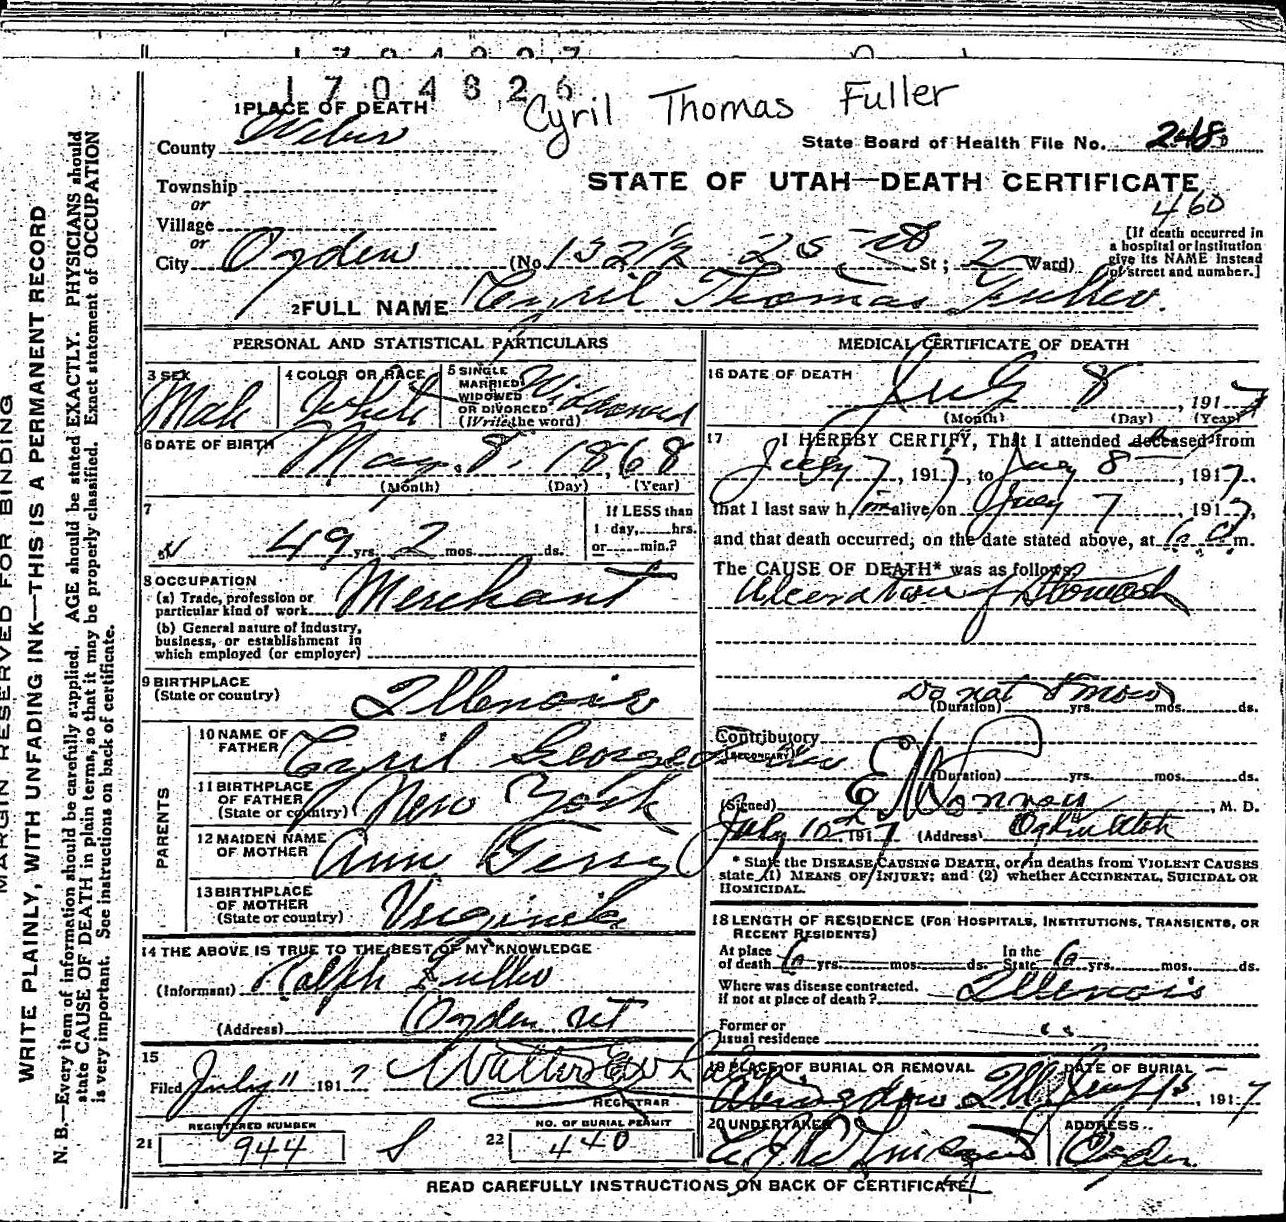 1704826
Cyril Thomas Fuller
1 PLACE OF DEATH
County Weber
State Board of Health File No. 248
Township
or
STATE OF UTAH—DEATH CERTIFICATE
460
Village
or
City Ogden (No. 132½ 25th St; 2 Ward)
[If death occurred in
a hospital or institution
give its NAME instead
of street and number.]
2 FULL NAME Cyril Thomas Fuller.
MARGIN RESERVED FOR BINDING
WRITE PLAINLY, WITH UNFADING INK—THIS IS A PERMANENT RECORD
N. B.—Every item of information should be carefully supplied. AGE should be stated EXACTLY. PHYSICIANS should
state CAUSE OF DEATH in plain terms, so that it may be properly classified. Exact statement of OCCUPATION
is very important. See instructions on back of certificate.
PERSONAL AND STATISTICAL PARTICULARS
3 SEX Male
4 COLOR OR RACE White
5 SINGLE
MARRIED
WIDOWED
OR DIVORCED
(Write the word) Widowed
6 DATE OF BIRTH May. 8, 1868
(Month) (Day) (Year)
7
49 yrs. 2 mos. ds.
If LESS than
1 day, hrs.
or min.?
8 OCCUPATION
(a) Trade, profession or
particular kind of work Merchant
(b) General nature of industry,
business, or establishment in
which employed (or employer)
9 BIRTHPLACE
(State or country) Illenois
PARENTS
10 NAME OF
FATHER Cyril George
11 BIRTHPLACE
OF FATHER
(State or country) New York
12 MAIDEN NAME
OF MOTHER Ann Terry
13 BIRTHPLACE
OF MOTHER
(State or country) Virginia
14 THE ABOVE IS TRUE TO THE BEST OF MY KNOWLEDGE
(Informant) Ralph Fuller
(Address) Ogden Ut
15
Filed July 11 1917
REGISTRAR
REGISTERED NUMBER
21 944
NO. OF BURIAL PERMIT
22 440
MEDICAL CERTIFICATE OF DEATH
16 DATE OF DEATH July 8, 1917
(Month) (Day) (Year)
17 I HEREBY CERTIFY, That I attended deceased from
July 7, 1917, to July 8, 1917,
that I last saw h im alive on July 7, 1917,
and that death occurred, on the date stated above, at 6 a.m.
The CAUSE OF DEATH* was as follows:
Ulceration of Stomach
Do not Know
(Duration) yrs. mos. ds.
Contributory
(SECONDARY)
(Duration) yrs. mos. ds.
(Signed) M. D.
July 10 1917 (Address) Ogden Utah
* State the DISEASE CAUSING DEATH, or, in deaths from VIOLENT CAUSES
state (1) MEANS OF INJURY; and (2) whether ACCIDENTAL, SUICIDAL OR
HOMICIDAL.
18 LENGTH OF RESIDENCE (FOR HOSPITALS, INSTITUTIONS, TRANSIENTS, OR
RECENT RESIDENTS)
At place
of death 6 yrs. mos. ds.
In the
State 6 yrs. mos. ds.
Where was disease contracted,
if not at place of death? Illenois
Former or
usual residence " "
19 PLACE OF BURIAL OR REMOVAL
Abingdon Ill.
DATE OF BURIAL
July 15, 1917
20 UNDERTAKER
ADDRESS
Ogden.
READ CAREFULLY INSTRUCTIONS ON BACK OF CERTIFICATE